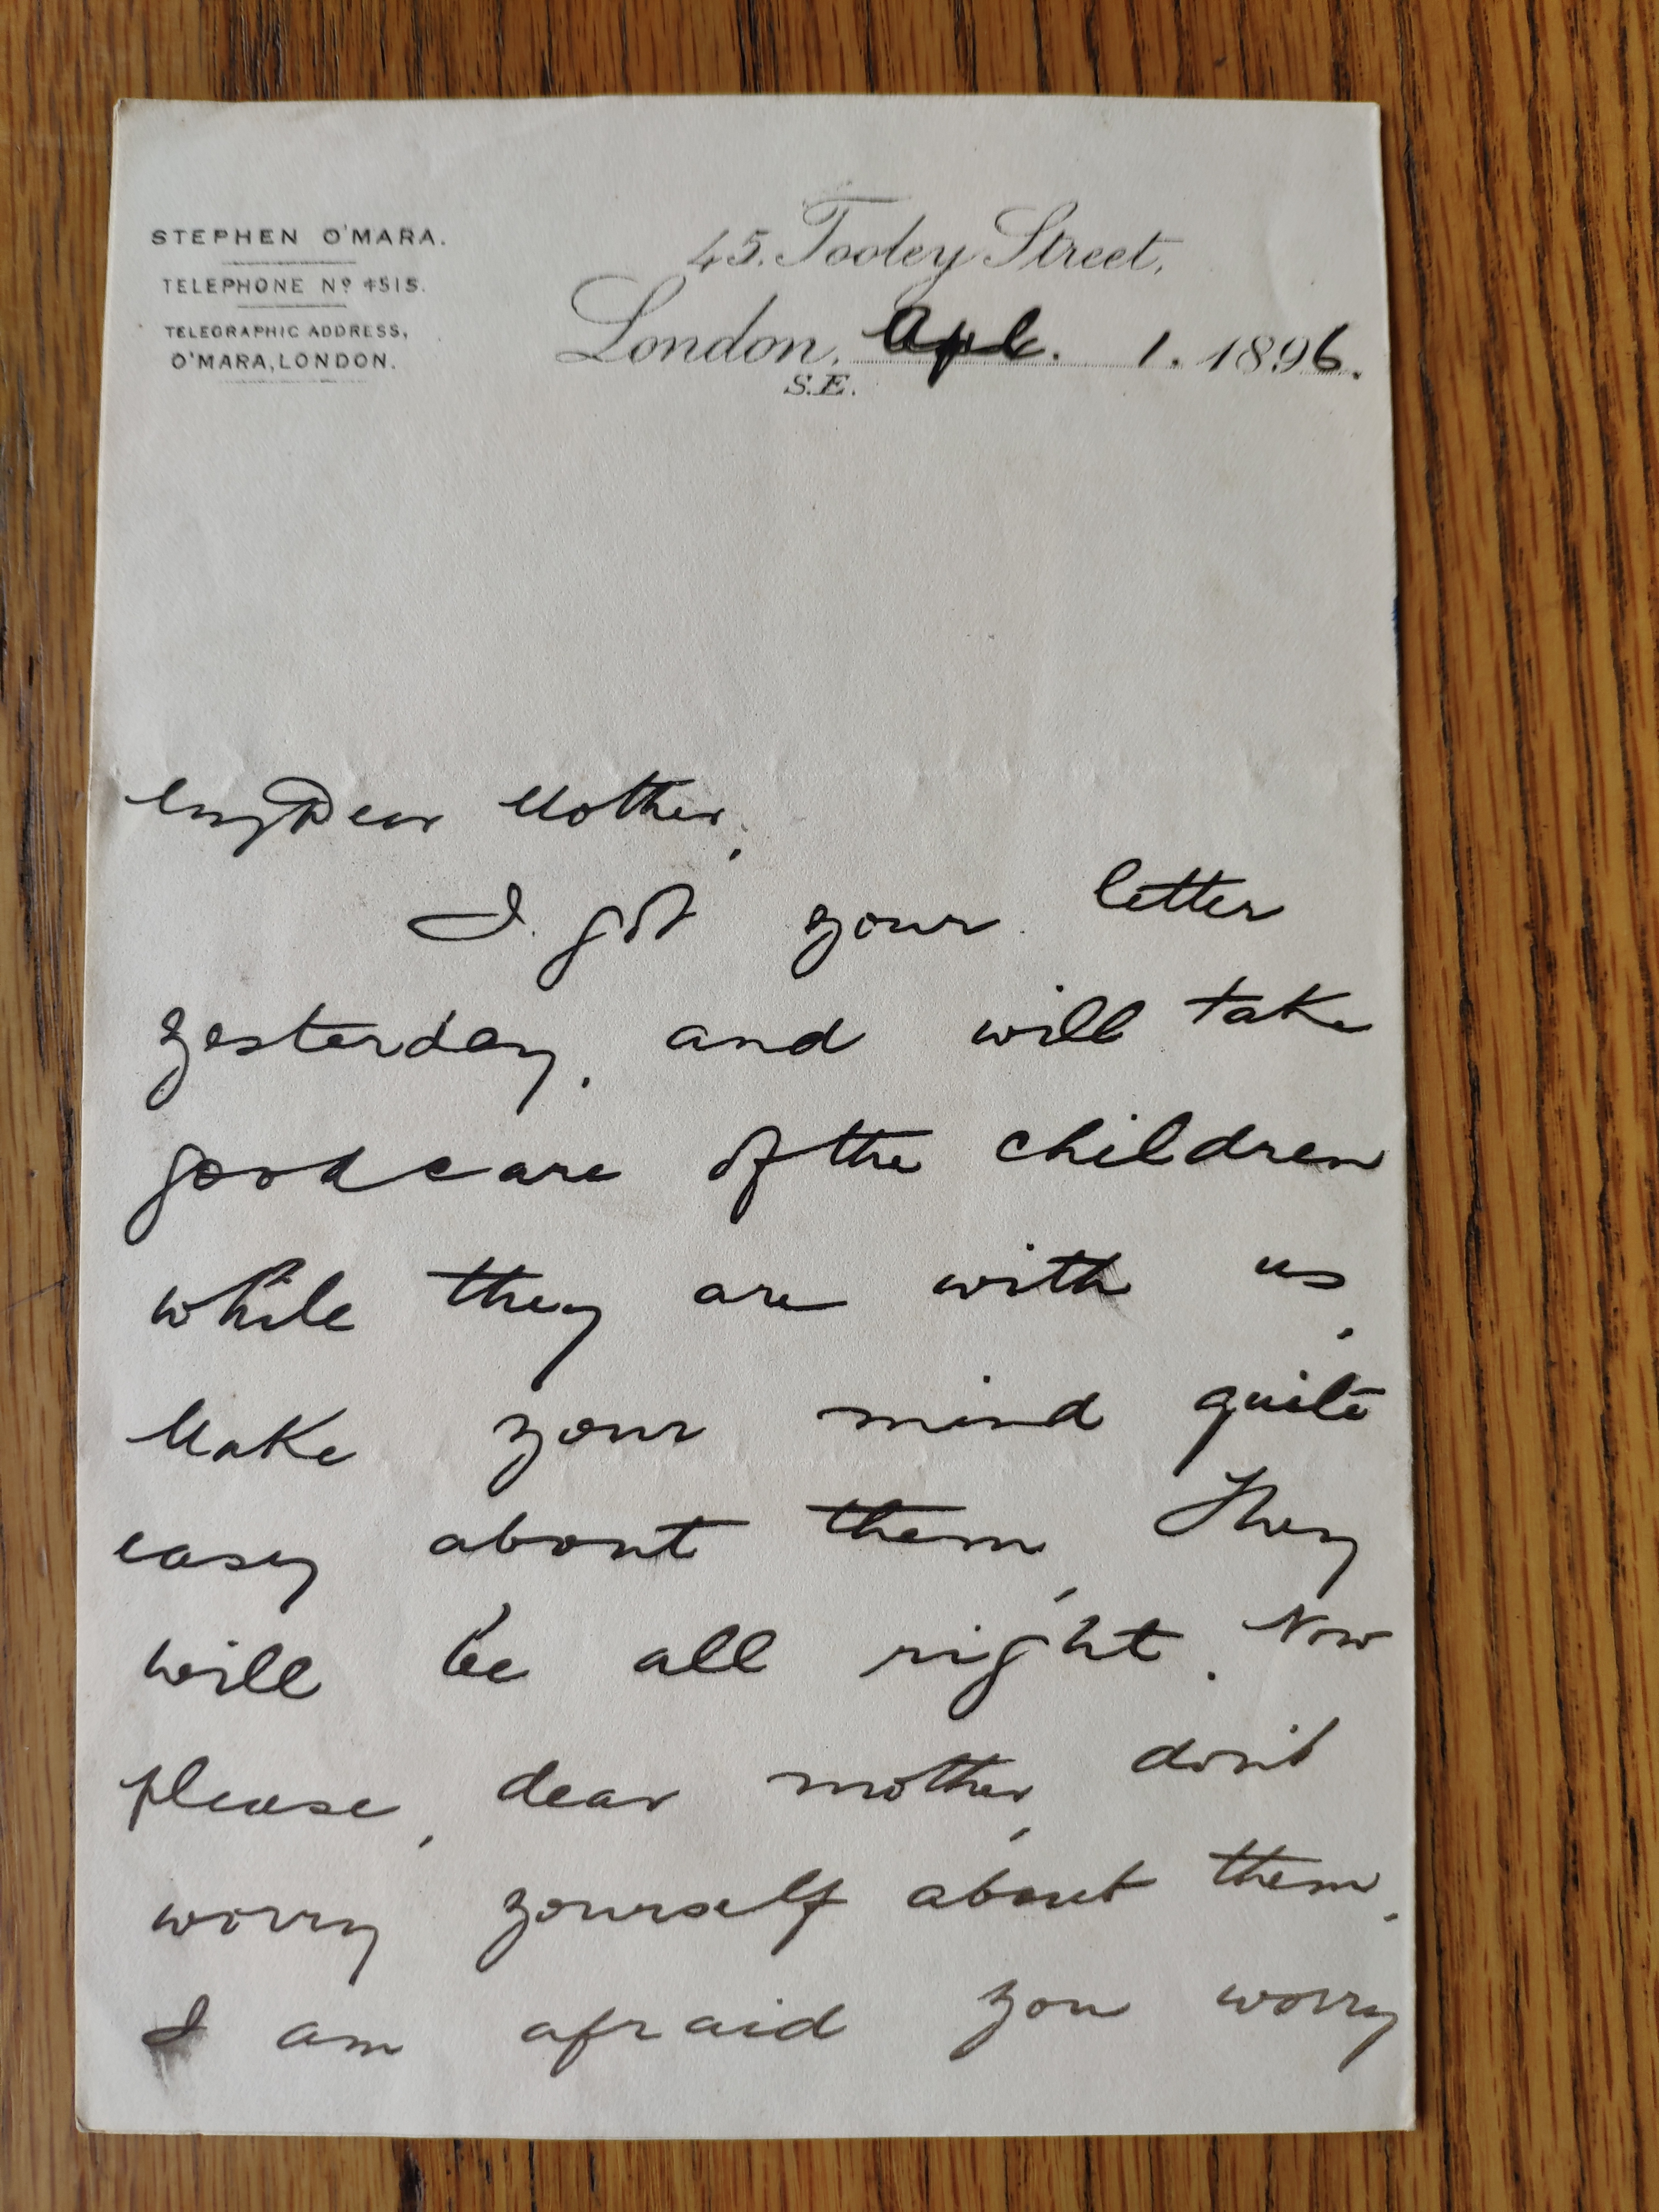 STEPHEN O'MARA.
TELEPHONE Nº 4515.
TELEGRAPHIC ADDRESS,
O'MARA, LONDON.
45. Tooley Street,
London, Apl. 1. 1896.
S.E.
My Dear Mother,
I got your letter
yesterday, and will take
good care of the children
while they are with us.
Make your mind quite
easy about them, They
will be all right. Now
please, dear mother, don't
worry yourself about them.
I am afraid you worry